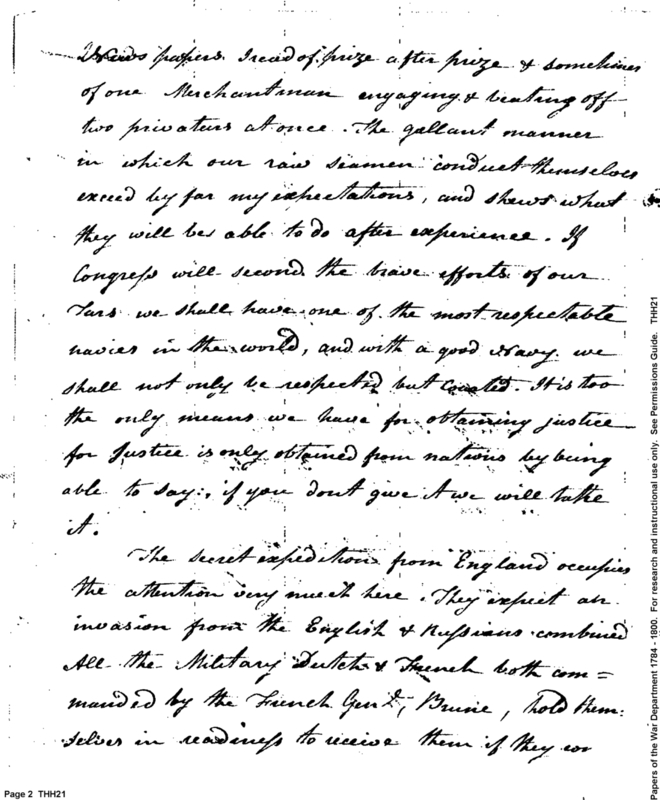 News papers I read of prize after prize & sometimes
of one Merchantman engaging & beating off
two privaturs at once. The gallant manner
in which our raw seamen conduct themselves
exceed by far my expectations, and shews what
they will be able to do after experience. If
Congress will second the brave efforts of our
Tars we shall have one of the most respectable
navies in the world, and with a good Navy we
shall not only be respected but Courted. It is too
the only means we have for obtaining justice
for Justice is only obtained from nations by being
able to say: if you dont give it we will take
it.
The secret expedition from England occupies
the attention very much here. They expect an
invasion from the English & Russians combined
All the Military Dutch & French both com=
manded by the French Genl, Brune, hold them:
selves in readiness to receive them if they
Page 2 THH21
Papers of the War Department 1784 - 1800. For research and instructional use only. See Permissions Guide. THH21